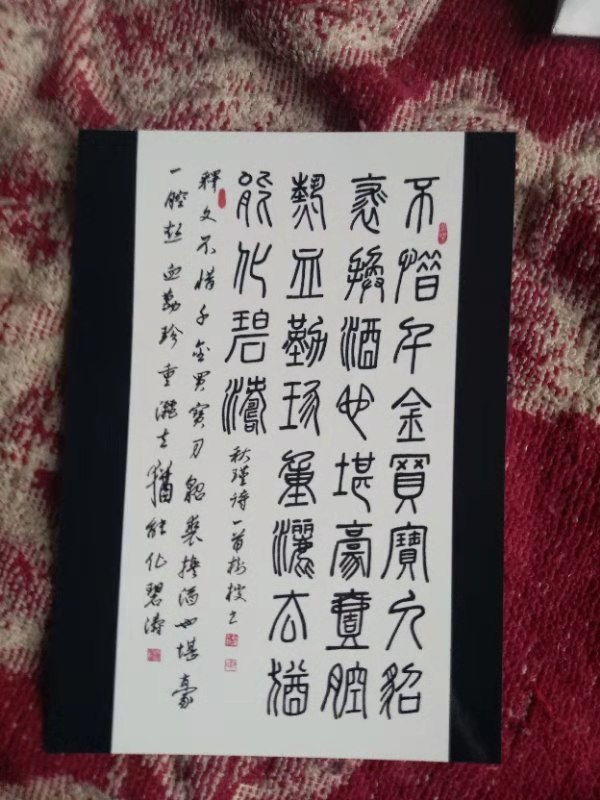 不惜千金買寶刀貂
裘換酒也堪豪壹腔
熱血勤珍重灑去猶
能化碧濤
秋瑾诗一首
释文不惜千金买宝刀貂裘换酒也堪豪
一腔热血勤珍重洒去猶能化碧涛